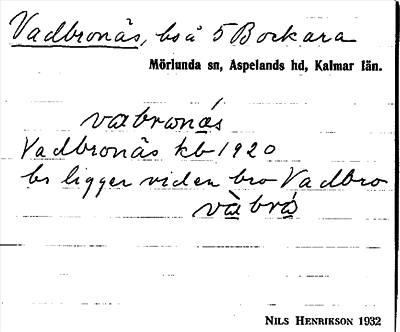 Vadbronäs, bs å 5 Bockara
Mörlunda sn, Aspelands hd, Kalmar län.
vabronäs
Vadbronäs kb 1920
bs ligger vid en bro Vadbro
và brò
NILS HENRIKSON 1932